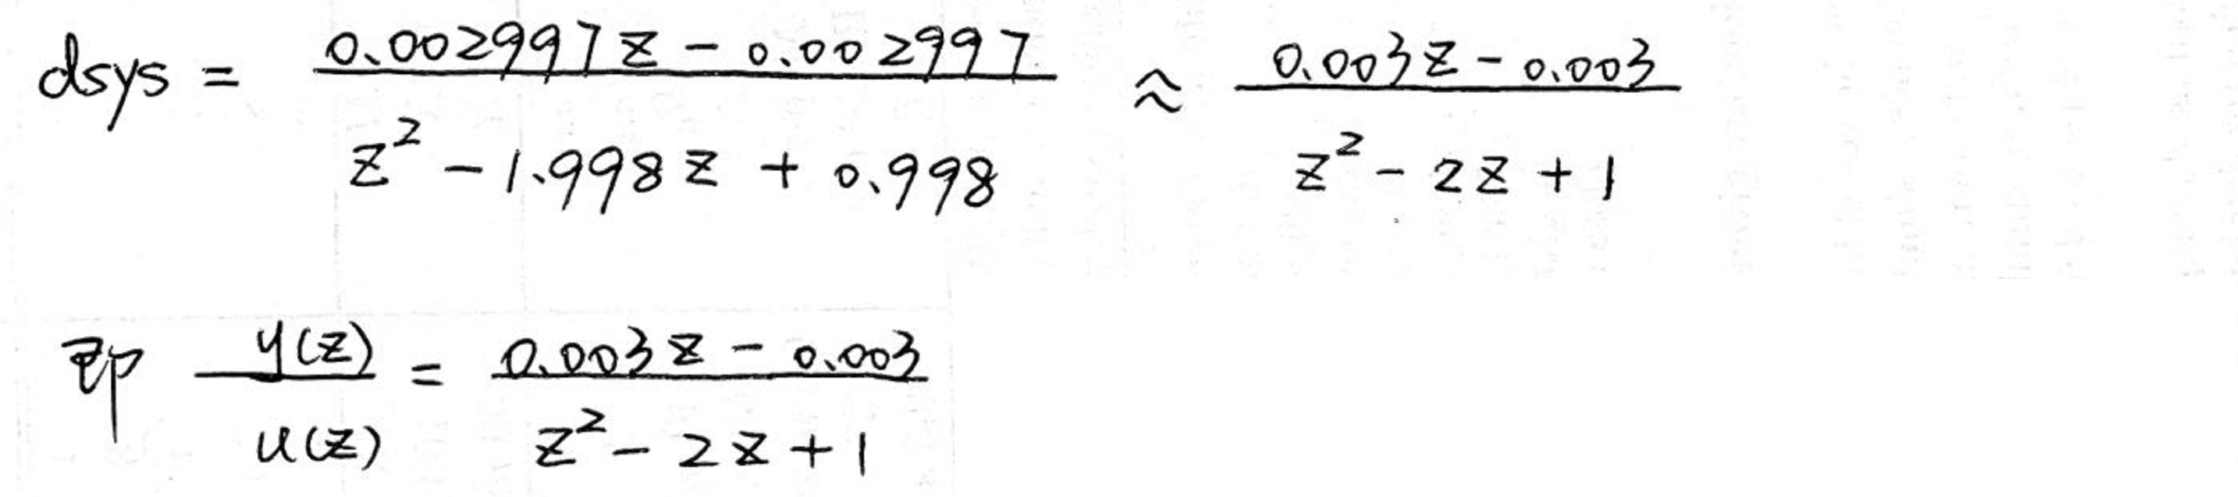 dsys = \frac{0.002997z - 0.002997}{z^2 - 1.998z + 0.998} ≈ \frac{0.003z - 0.003}{z^2 - 2z + 1}
即 \frac{y(z)}{u(z)} = \frac{0.003z - 0.003}{z^2 - 2z + 1}